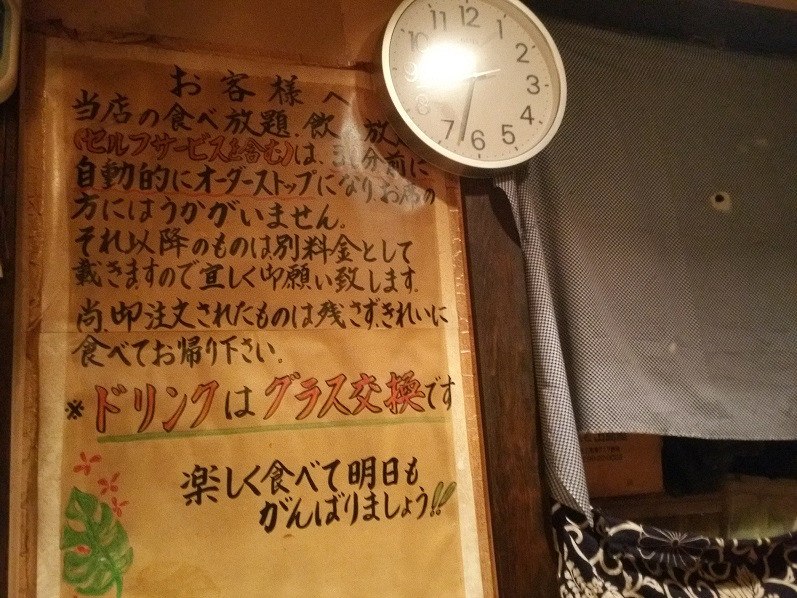 お客様へ
当店の食べ放題、飲
(セルフサービスも含む)は、 分前に
自動的にオーダーストップになり、お席の
方にはうかがいません。
それ以降のものは別料金として
戴きますので宜しく御願い致します。
尚、御注文されたものは残さず、きれいに
食べてお帰り下さい。
※ドリンクはグラス交換です
楽しく食べて明日も
がんばりましょう!!
11 12 1
10 2
3
8 4
7 6 5